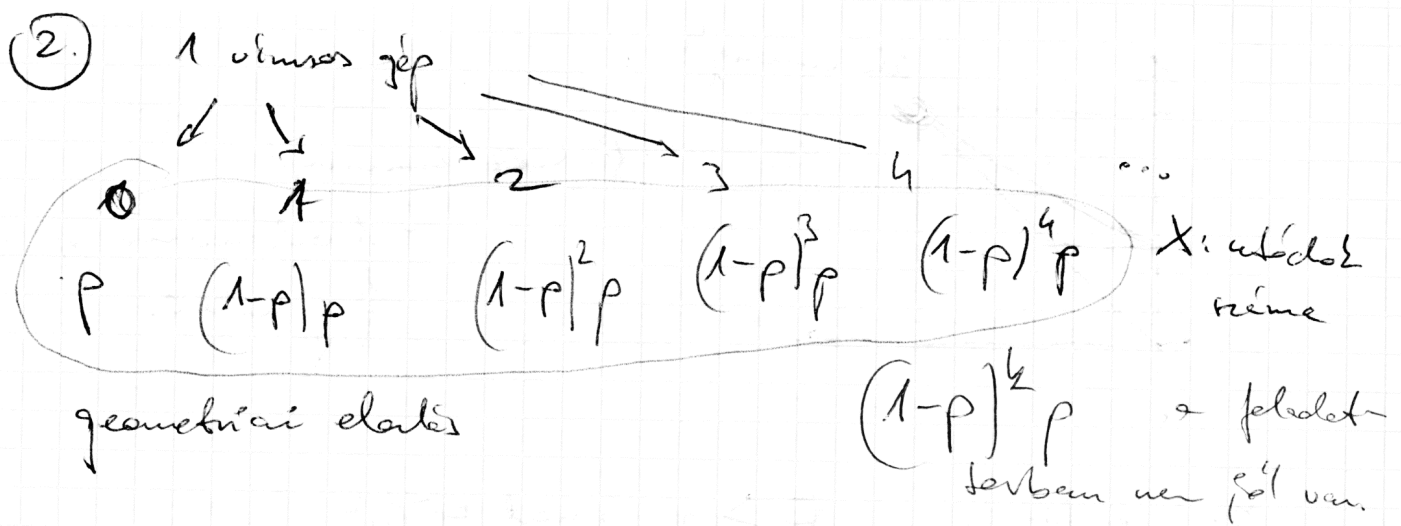 2. 1 vírusos gép
0 1 2 3 4 ...
p (1-p)p (1-p)²p (1-p)³p (1-p)⁴p X: utódok
száma
geometriai eloszlás (1-p)ᵏp a feladat-
sorban nem jól van.